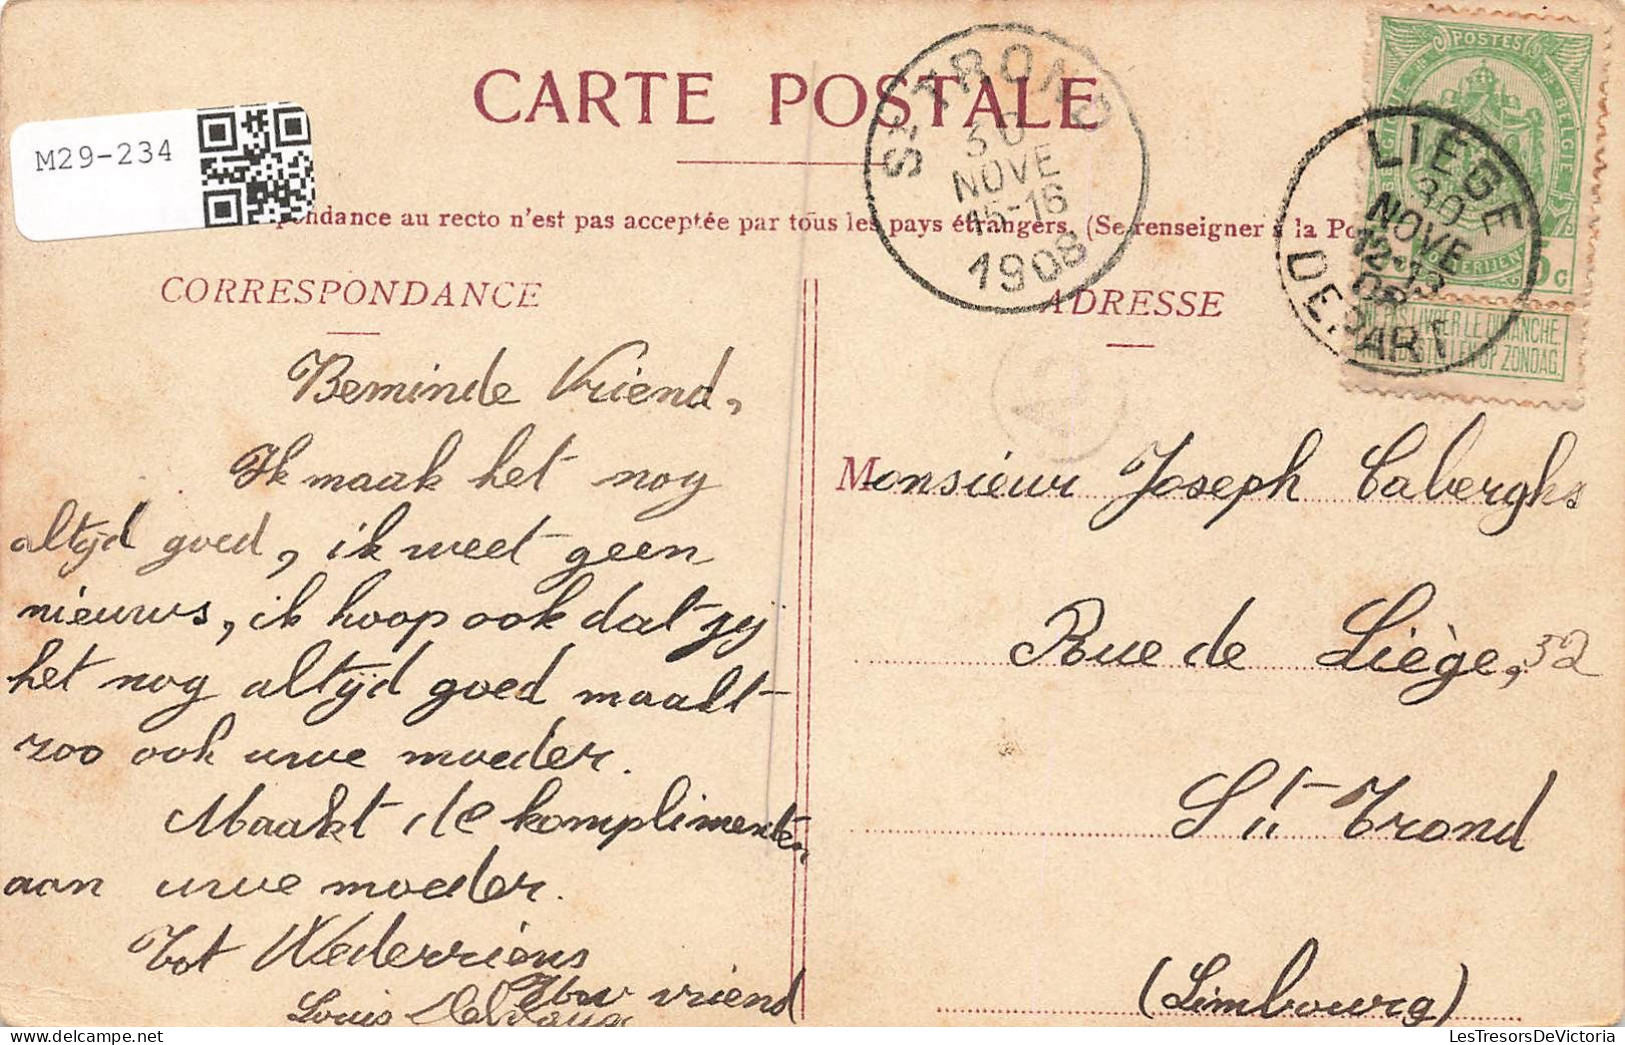 CARTE POSTALE
M29-234
ondance au recto n'est pas acceptée par tous les pays étrangers. (Se renseigner à la Po
ST TROND
30
NOVE
15-16
1908
POSTES
LIÈGE
30
NOVE
12-13
08
DEPART
LIVRER LE DIMANCHE
OP ZONDAG.
CORRESPONDANCE
Beminde Vriend,
Ik maak het nog
altijd goed, ik weet geen
nieuws, ik hoop ook dat zij
het nog altijd goed maakt
zoo ook uwe moeder.
Maakt de komplimenten
aan uwe moeder.
Tot Wederziens
Uw vriend
Louis
ADRESSE
Monsieur Joseph Caberghs
Rue de Liège, 32
St. Trond
(Limbourg)
LesTresorsDeVictoria